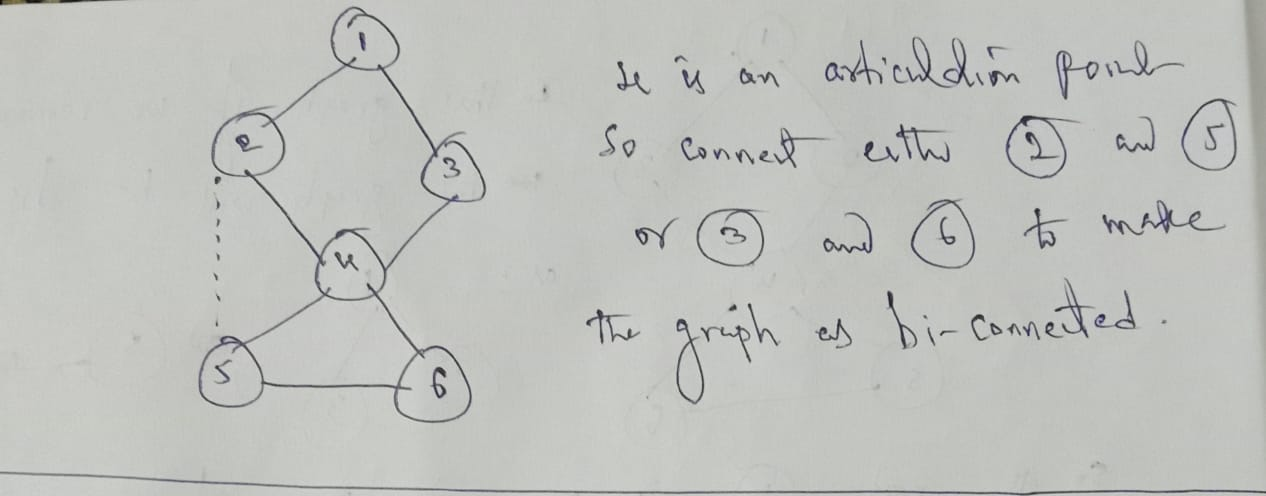 1
2
3
4
5
6
4 is an articuldion point
So connect either 2 and 5
or 3 and 6 to make
the graph as bi-connected.